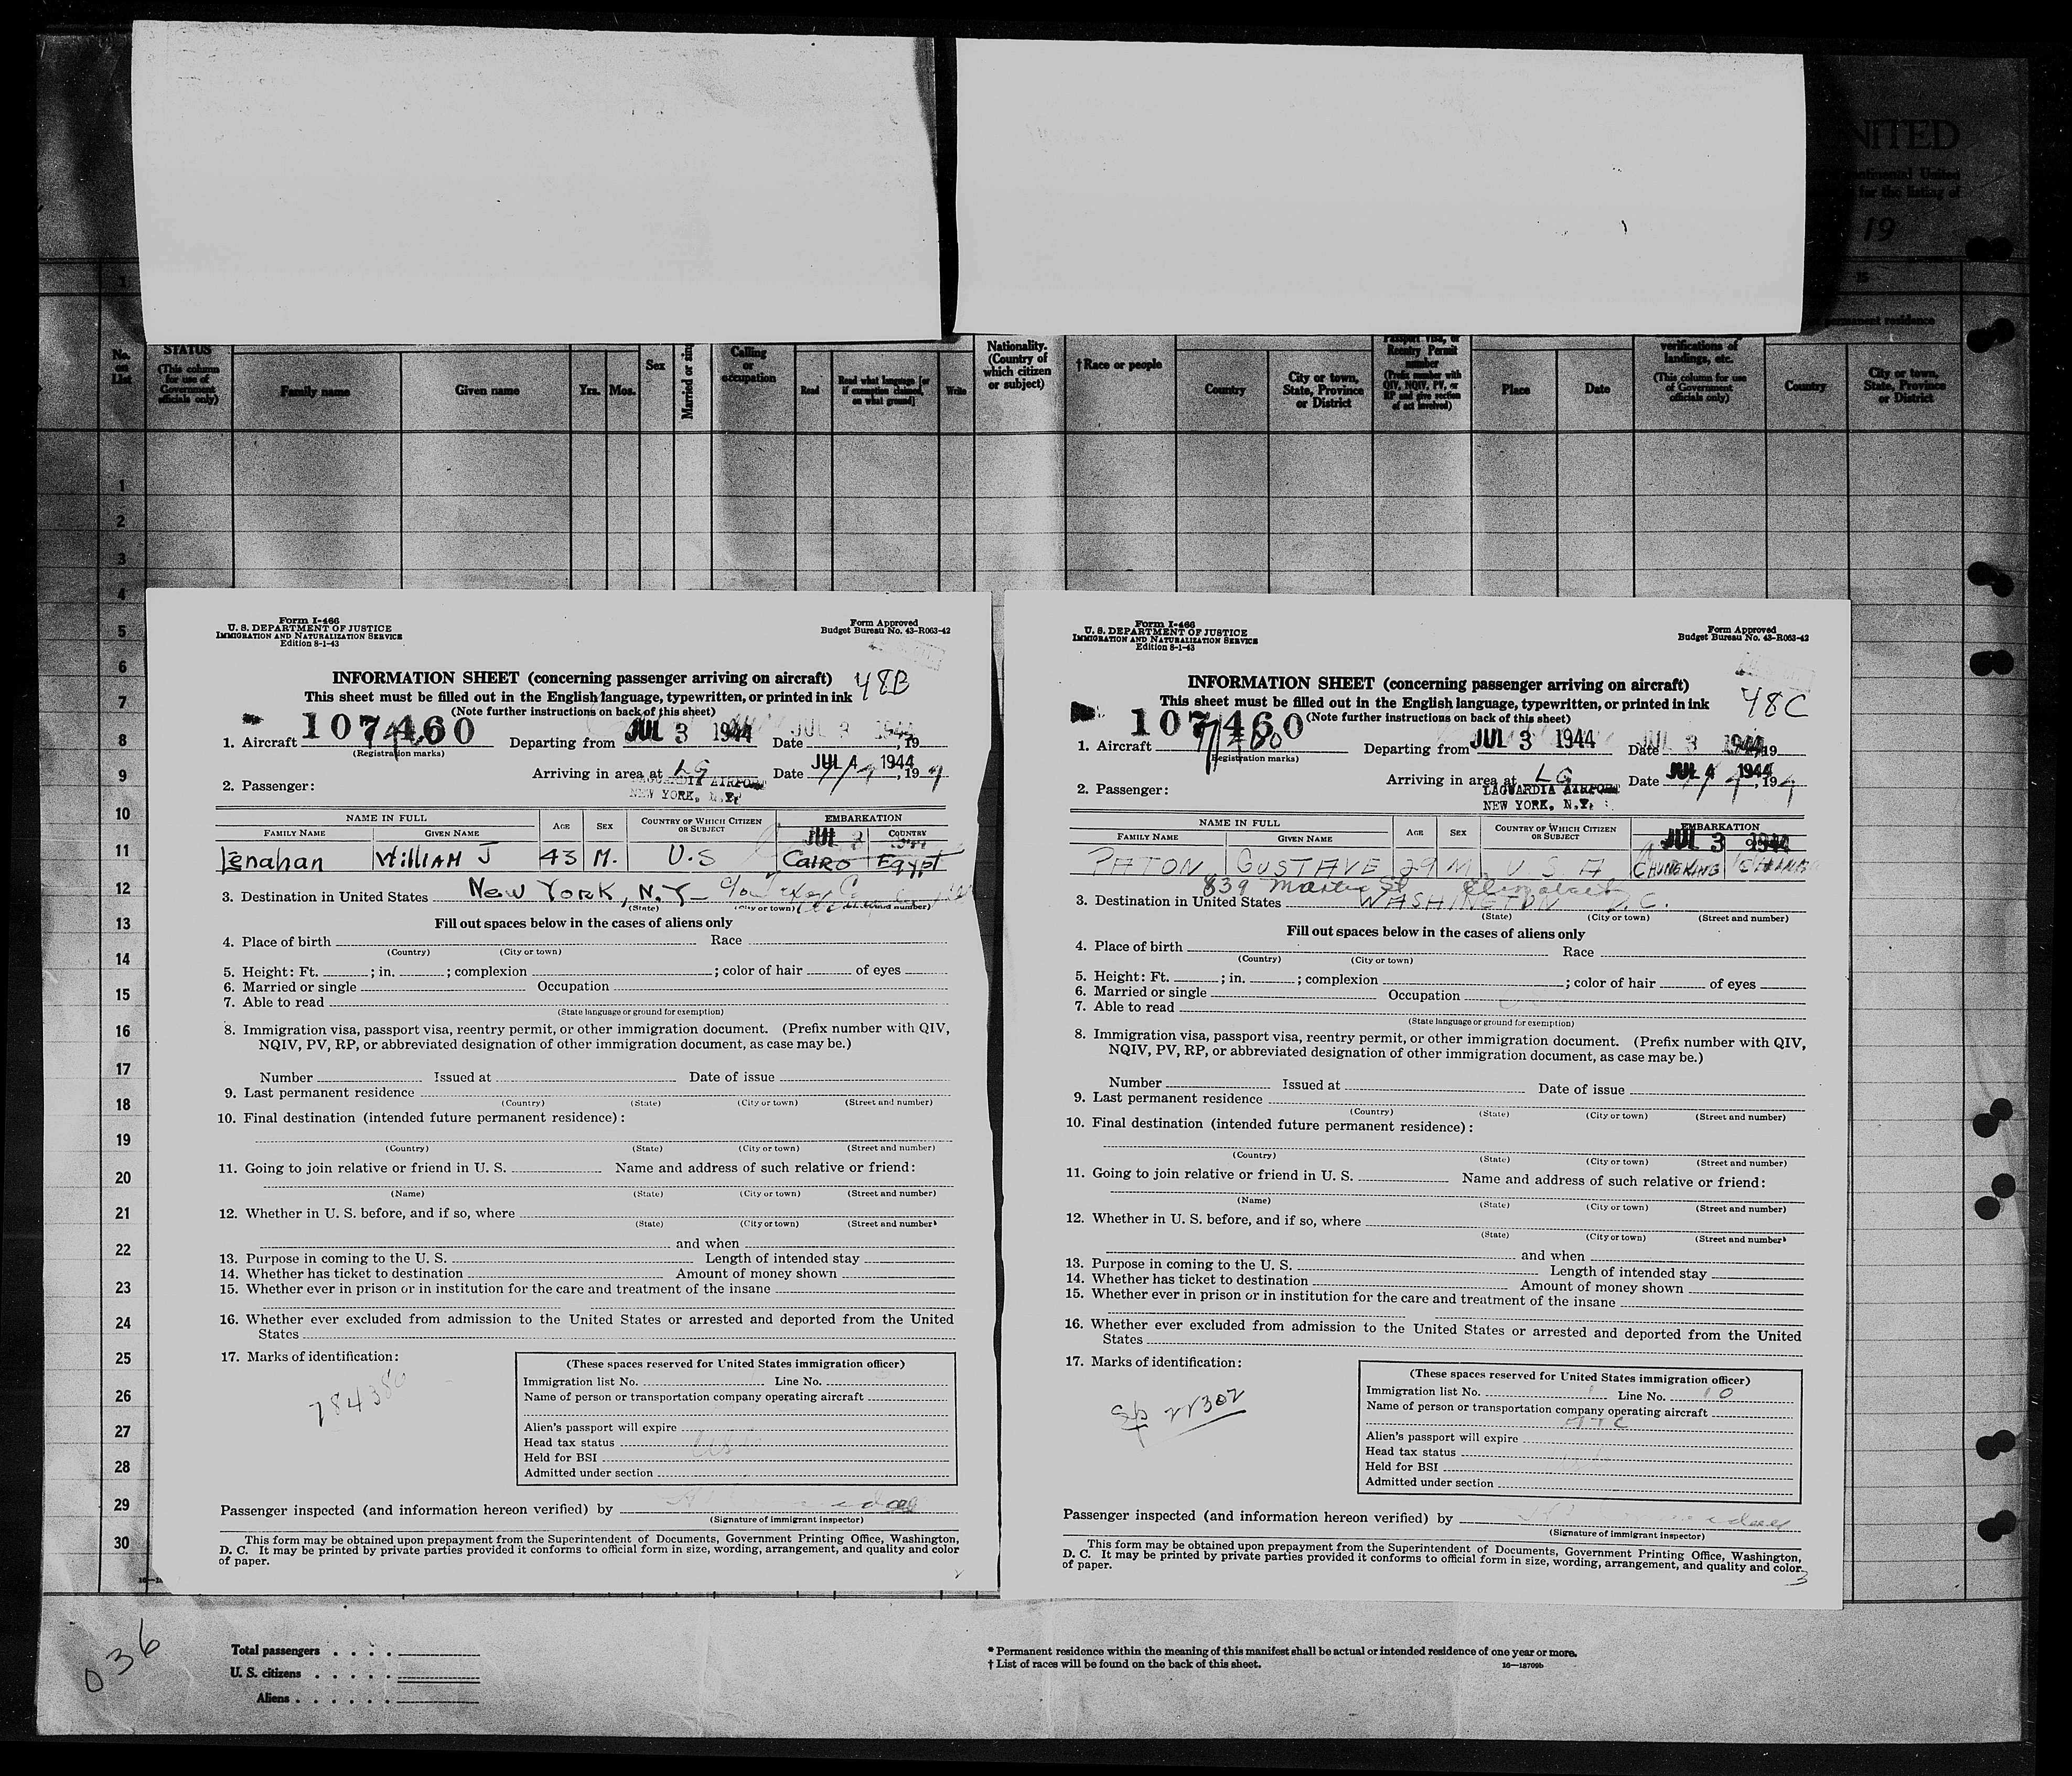 NITED
ntinental United
for the listing of
19
1
15
permanent residence
No. on List
STATUS
(This column for use of Government officials only)
Family name
Given name
Yrs.
Mos.
Sex
Married or sin
Calling or occupation
Read
Read what language [or if exemption claimed, on what ground]
Write
Nationality. (Country of which citizen or subject)
† Race or people
Country
City or town, State, Province or District
Passport visa, or Reentry Permit number
(Prefix number with QIV, NQIV, PV, or RP and give section of act involved)
Place
Date
verifications of landings, etc.
(This column for use of Government officials only)
Country
City or town, State, Province or District
1
2
3
4
5
6
7
8
9
10
11
12
13
14
15
16
17
18
19
20
21
22
23
24
25
26
27
28
29
30
Form I-466
U. S. DEPARTMENT OF JUSTICE
IMMIGRATION AND NATURALIZATION SERVICE
Edition 8-1-43
Form Approved
Budget Bureau No. 43-R063-42
INFORMATION SHEET (concerning passenger arriving on aircraft) 48B
This sheet must be filled out in the English language, typewritten, or printed in ink
(Note further instructions on back of this sheet)
1. Aircraft 107460 Departing from JUL 3 1944 Date JUL 3 1944, 19
(Registration marks)
Arriving in area at LG Date JUL 4 1944 7/4, 194
LAGUARDIA AIRPORT
NEW YORK, N.Y.
2. Passenger:
NAME IN FULL AGE SEX COUNTRY OF WHICH CITIZEN OR SUBJECT EMBARKATION
FAMILY NAME GIVEN NAME JUL 3 COUNTRY
Lenahan WilliAM J 43 M. U.S CAIRO EGYPT
3. Destination in United States New York, N.Y- c/o
(State) (City or town) (Street and number)
Fill out spaces below in the cases of aliens only
4. Place of birth Race
(Country) (City or town)
5. Height: Ft. ; in. ; complexion ; color of hair of eyes
6. Married or single Occupation
7. Able to read
(State language or ground for exemption)
8. Immigration visa, passport visa, reentry permit, or other immigration document. (Prefix number with QIV,
NQIV, PV, RP, or abbreviated designation of other immigration document, as case may be.)
Number Issued at Date of issue
9. Last permanent residence
(Country) (State) (City or town) (Street and number)
10. Final destination (intended future permanent residence):
(Country) (State) (City or town) (Street and number)
11. Going to join relative or friend in U. S. Name and address of such relative or friend:
(Name) (State) (City or town) (Street and number)
12. Whether in U. S. before, and if so, where
(State) (City or town) (Street and number)
and when
13. Purpose in coming to the U. S. Length of intended stay
14. Whether has ticket to destination Amount of money shown
15. Whether ever in prison or in institution for the care and treatment of the insane
16. Whether ever excluded from admission to the United States or arrested and deported from the United
States
17. Marks of identification:
784380
(These spaces reserved for United States immigration officer)
Immigration list No. Line No.
Name of person or transportation company operating aircraft
Alien's passport will expire
Head tax status
Held for BSI
Admitted under section
Passenger inspected (and information hereon verified) by
(Signature of immigrant inspector)
This form may be obtained upon prepayment from the Superintendent of Documents, Government Printing Office, Washington,
D. C. It may be printed by private parties provided it conforms to official form in size, wording, arrangement, and quality and color
of paper.
Form I-466
U. S. DEPARTMENT OF JUSTICE
IMMIGRATION AND NATURALIZATION SERVICE
Edition 8-1-43
Form Approved
Budget Bureau No. 43-R063-42
INFORMATION SHEET (concerning passenger arriving on aircraft)
48C
This sheet must be filled out in the English language, typewritten, or printed in ink
(Note further instructions on back of this sheet)
1. Aircraft 107460 Departing from JUL 3 1944 Date JUL 3 1944 19
(Registration marks)
Arriving in area at LG Date JUL 4 1944, 194
LAGUARDIA AIRPORT
NEW YORK, N.Y.
2. Passenger:
NAME IN FULL AGE SEX COUNTRY OF WHICH CITIZEN OR SUBJECT EMBARKATION
FAMILY NAME GIVEN NAME JUL 3 1944
PATON GUSTAVE 29 M USA CHUNGKING CHINA
839 Martin St
3. Destination in United States WASHINGTON D.C.
(State) (City or town) (Street and number)
Fill out spaces below in the cases of aliens only
4. Place of birth Race
(Country) (City or town)
5. Height: Ft. ; in. ; complexion ; color of hair of eyes
6. Married or single Occupation
7. Able to read
(State language or ground for exemption)
8. Immigration visa, passport visa, reentry permit, or other immigration document. (Prefix number with QIV,
NQIV, PV, RP, or abbreviated designation of other immigration document, as case may be.)
Number Issued at Date of issue
9. Last permanent residence
(Country) (State) (City or town) (Street and number)
10. Final destination (intended future permanent residence):
(Country) (State) (City or town) (Street and number)
11. Going to join relative or friend in U. S. Name and address of such relative or friend:
(Name) (State) (City or town) (Street and number)
12. Whether in U. S. before, and if so, where
(State) (City or town) (Street and number)
and when
13. Purpose in coming to the U. S. Length of intended stay
14. Whether has ticket to destination Amount of money shown
15. Whether ever in prison or in institution for the care and treatment of the insane
16. Whether ever excluded from admission to the United States or arrested and deported from the United
States
17. Marks of identification:
Sp 22302
(These spaces reserved for United States immigration officer)
Immigration list No. Line No. 10
Name of person or transportation company operating aircraft
ATC
Alien's passport will expire
Head tax status
Held for BSI
Admitted under section
Passenger inspected (and information hereon verified) by
(Signature of immigrant inspector)
This form may be obtained upon prepayment from the Superintendent of Documents, Government Printing Office, Washington,
D. C. It may be printed by private parties provided it conforms to official form in size, wording, arrangement, and quality and color
of paper.
3
036
Total passengers
U. S. citizens
Aliens
* Permanent residence within the meaning of this manifest shall be actual or intended residence of one year or more.
† List of races will be found on the back of this sheet.
16—18709b